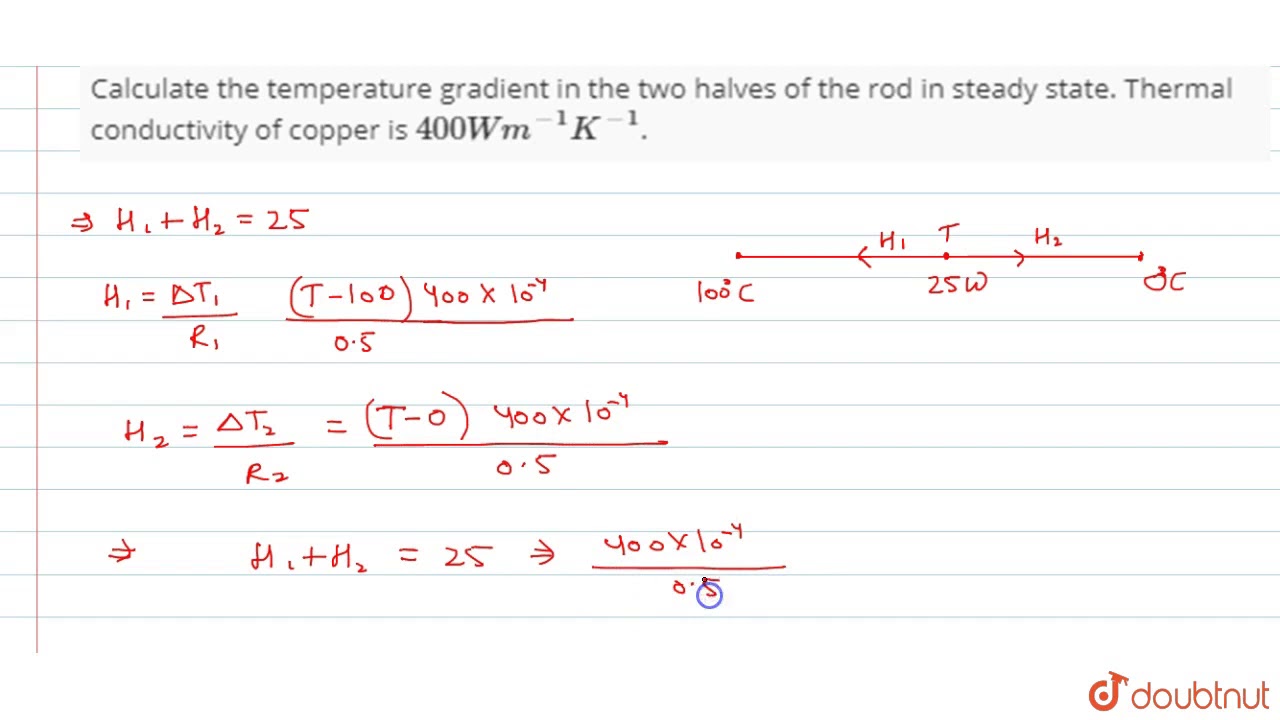 Calculate the temperature gradient in the two halves of the rod in steady state. Thermal
conductivity of copper is 400Wm⁻¹K⁻¹.
⇒ H₁ + H₂ = 25
H₁ T H₂
100°C 25W 0°C
H₁ = ΔT₁ / R₁ (T-100) 400 × 10⁻⁴ / 0.5
H₂ = ΔT₂ / R₂ = (T-0) 400 × 10⁻⁴ / 0.5
⇒ H₁ + H₂ = 25 ⇒ 400 × 10⁻⁴ / 0.5
doubtnut